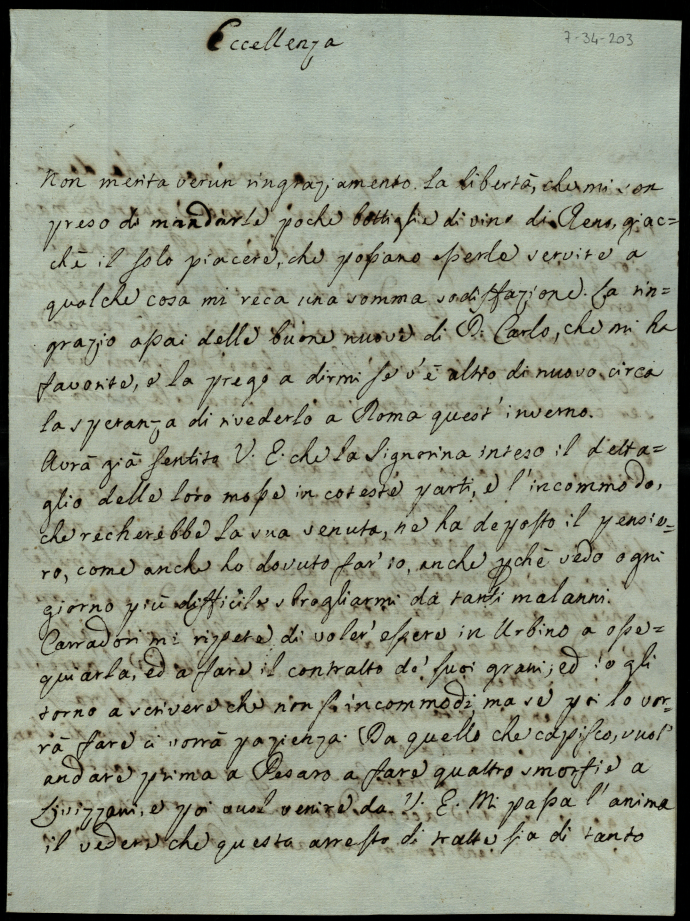 7-34-203
Eccellenza
Non merita verun ringraziamento la libertà, che mi son
preso di mandarle poche bottiglie di vino di Reno, giac=
chè il solo piacere, che possano esserle servite a
qualche cosa mi reca una somma sodisfazione. La rin=
grazio assai delle buone nuove di D. Carlo, che mi ha
favorite, e la prego a dirmi se v'è altro di nuovo circa
la speranza di rivederlo a Roma quest' inverno.
Avrà già sentito V. E. che la Signorina inteso il detta=
glio delle loro mosse in coteste parti, e l'incommodo,
che recherebbe la sua venuta, ne ha deposto il pensie=
ro, come anche ho dovuto far' io, anche pchè vedo ogni
giorno più difficile sbrogliarmi da tanti malanni.
Carradori mi ripete di voler' essere in Urbino a osse=
quiarla, ed a fare il contratto de' suoi grani; ed io gli
torno a scrivere che non s' incommodi, ma se poi lo vor=
rà fare ci vorrà pazienza. Da quello che capisco, vuol'
andare prima a Pesaro a fare quattro smorfie a
Livizzani, e poi vuol venire da V. E. Mi passa l'anima
il vedere che questo arresto di tratte sia di tanto